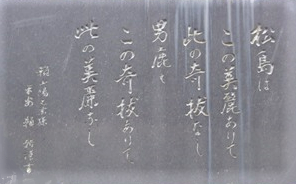 松島は
この美麗ありて
此の奇抜なし
男鹿は
この奇抜ありて
此の美麗なし